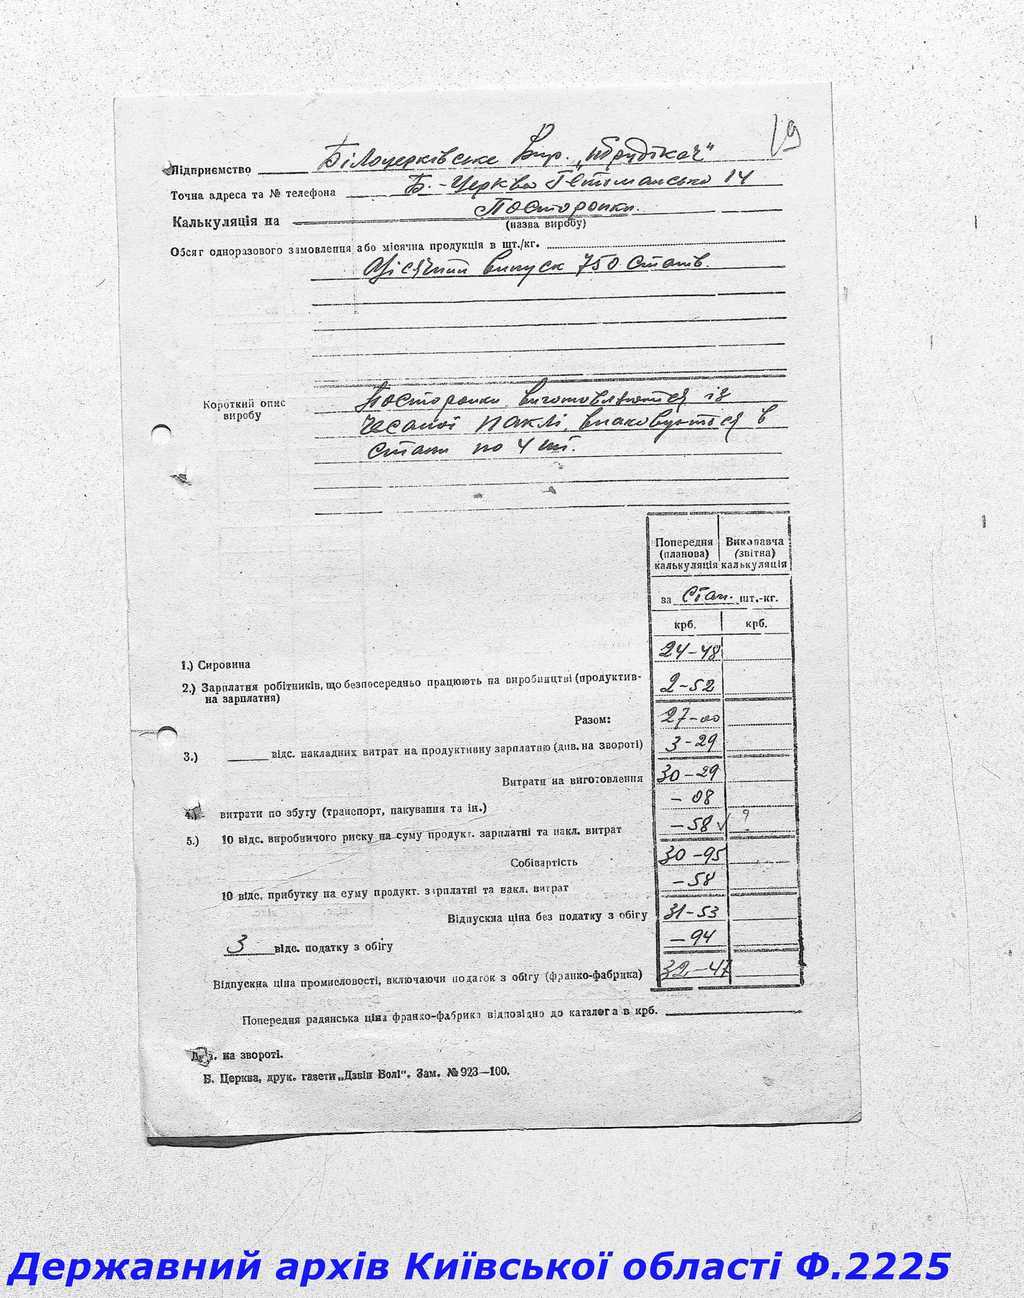 19
Підприємство Білоцерківське Вир.
Точна адреса та № телефона Б.-Церква Гетьманська 14
Калькуляція на Посторонки.
(назва виробу)
Обсяг одноразового замовлення або місячна продукція в шт./кг.
Місячний випуск 750 станів.
Короткий опис
виробу
Посторонки виготовляються із
чесаної паклі, впаковуються в
стани по 4 шт.
Попередня (планова) калькуляція
Виконавча (звітна) калькуляція
за Стан. шт.-кг.
крб. крб.
1.) Сировина 24-48
2.) Зарплатня робітників, що безпосередньо працюють на виробництві (продуктив-
на зарплатня) 2-52
Разом: 27-00
3.) відс. накладних витрат на продуктивну зарплатню (див. на звороті) 3-29
Витрати на виготовлення 30-29
4.) витрати по збуту (транспорт, пакування та ін.) -08
5.) 10 відс. виробничого риску на суму продукт. зарплатні та накл. витрат -58 ?
Собівартість 30-95
10 відс. прибутку на суму продукт. зарплатні та накл. витрат -58
Відпускна ціна без податку з обігу 31-53
3 відс. податку з обігу -94
Відпускна ціна промисловості, включаючи податок з обігу (франко-фабрика) 32-47
Попередня радянська ціна франко-фабрика відповідно до каталога в крб.
Див. на звороті.
Б. Церква, друк. газети „Дзвін Волі". Зам. № 923—100.
Державний архів Київської області Ф.2225